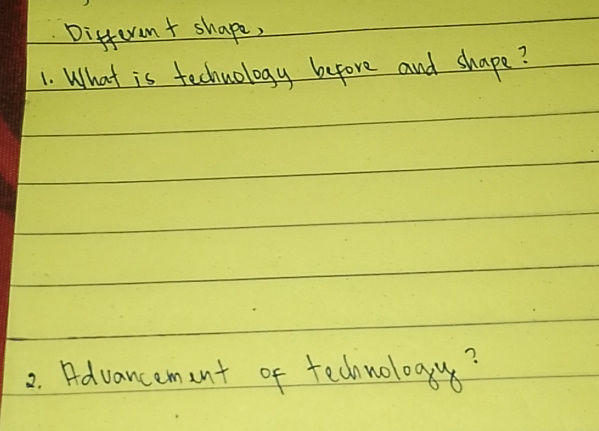 Different shape,
1. What is technology before and shape?
2. Advancement of technology?